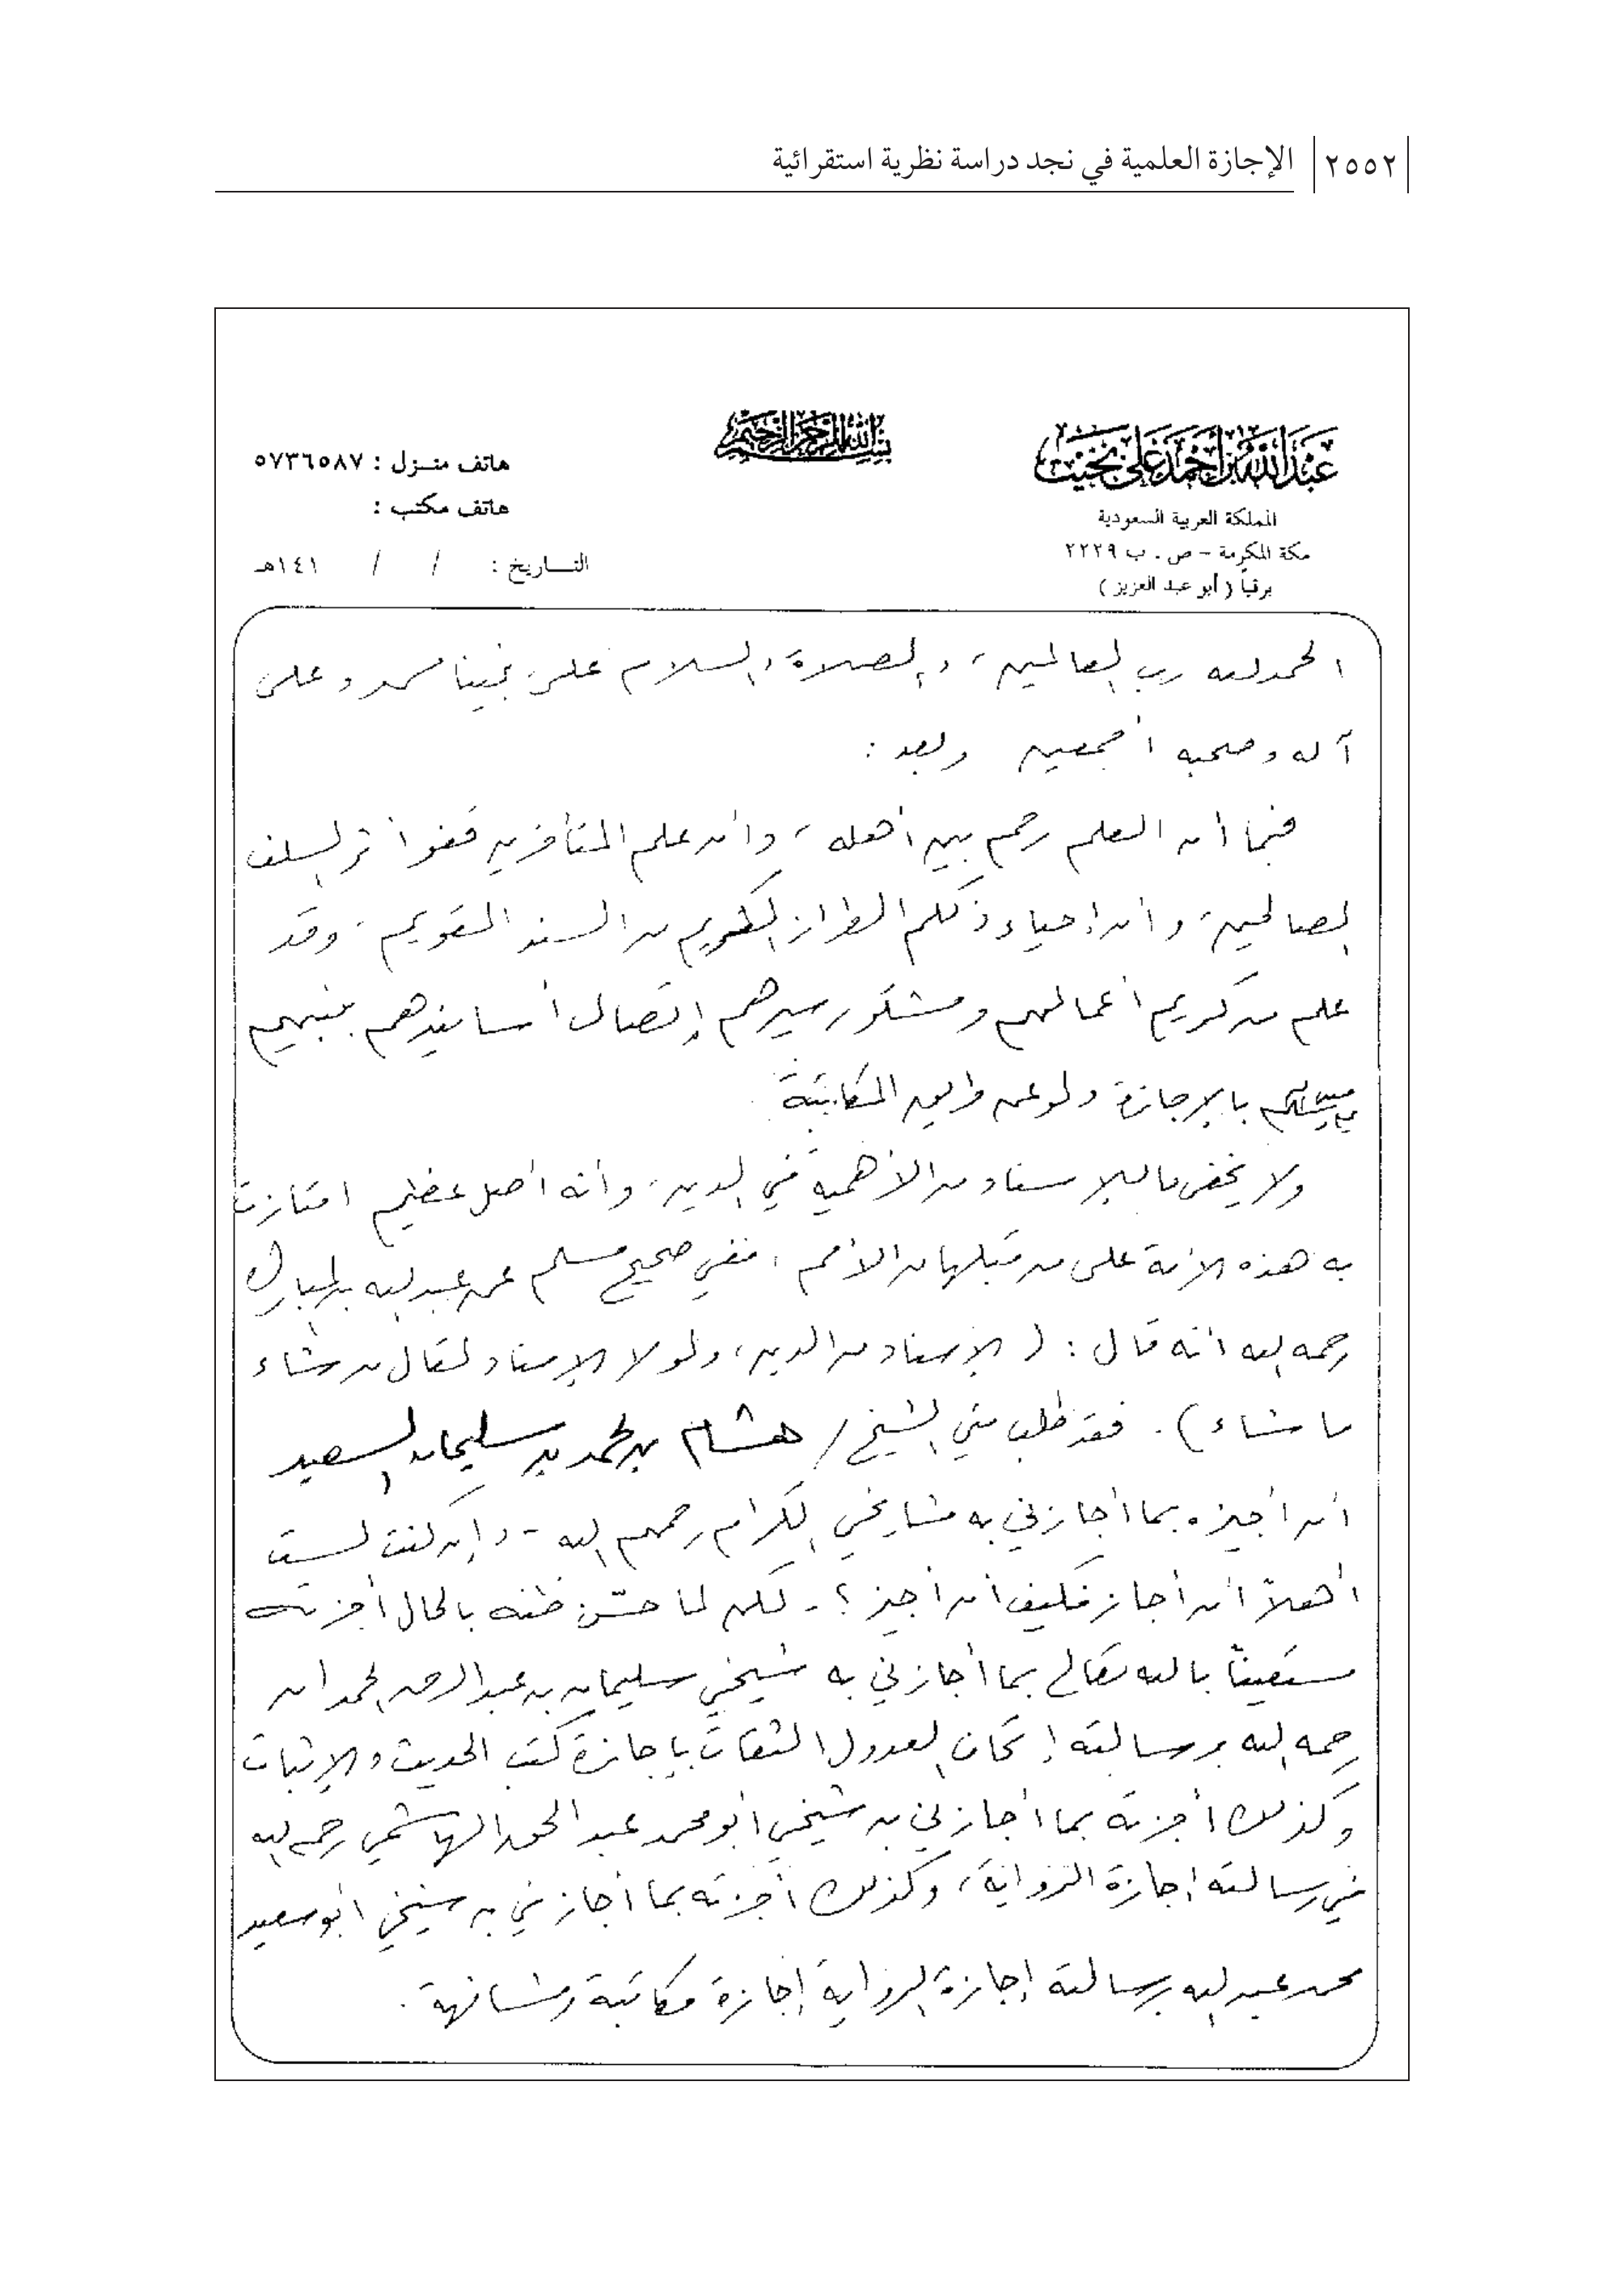 ٢٥٥٢ الإجازة العلمية في نجد دراسة نظرية استقرائية
عبدالله بن أحمد علي بخيت
بسم الله الرحمن الرحيم
هاتف منزل : ٥٧٣٦٥٨٧
المملكة العربية السعودية
هاتف مكتب :
مكة المكرمة - ص . ب ٢٢٢٩
التاريخ : / / ١٤١هـ
برقياً ( أبو عبد العزيز )
الحمد لله رب العالمين ، والصلاة والسلام على نبينا محمد وعلى
آله وصحبه أجمعين وبعد :
فبما أن العلم رحم بين أهله ، وأن علم المتأخرين قفو أثر السلف
الصالحين ، وأن إحياء ذلكم الطراز الكريم من السند القويم ، وقد
علم من كريم أعمالهم ومشكور سيرهم إتصال أسانيدهم بنبيهم
بالإجازة ولو عن طريق المكاتبة
ولا يخفى ما للإسناد من الأهمية في الدين ، وأنه أصل عظيم امتازت
به هذه الأمة على من قبلها من الأمم ، ففي صحيح مسلم عن عبد الله بن المبارك
رحمه الله أنه قال : ( الإسناد من الدين ، ولولا الإسناد لقال من شاء
ما شاء ) . فقد طلب مني الشيخ / هشام بن محمد بن سليمان السعيد
أن أجيزه بما أجازني به مشايخي الكرام رحمهم الله - وإن كنت لست
أهلاً أن أجاز فكيف أن أجيز ؟ - لكن لما حسّن ظنه بالحال أجزته
مستعيناً بالله تعالى بما أجازني به شيخي سليمان بن عبد الرحمن الحمدان
رحمه الله برسالته إتحاف العدول الثقات بإجازة كتب الحديث والإثبات
وكذلك أجزته بما أجازني به شيخي أبو محمد عبد الحق الهاشمي رحمه الله
في رسالته إجازة الرواية ، وكذلك أجزته بما أجازني به شيخي أبو سعيد
محمد عبد الله برسالته إجازة الرواية إجازة مكاتبة ومشافهة .